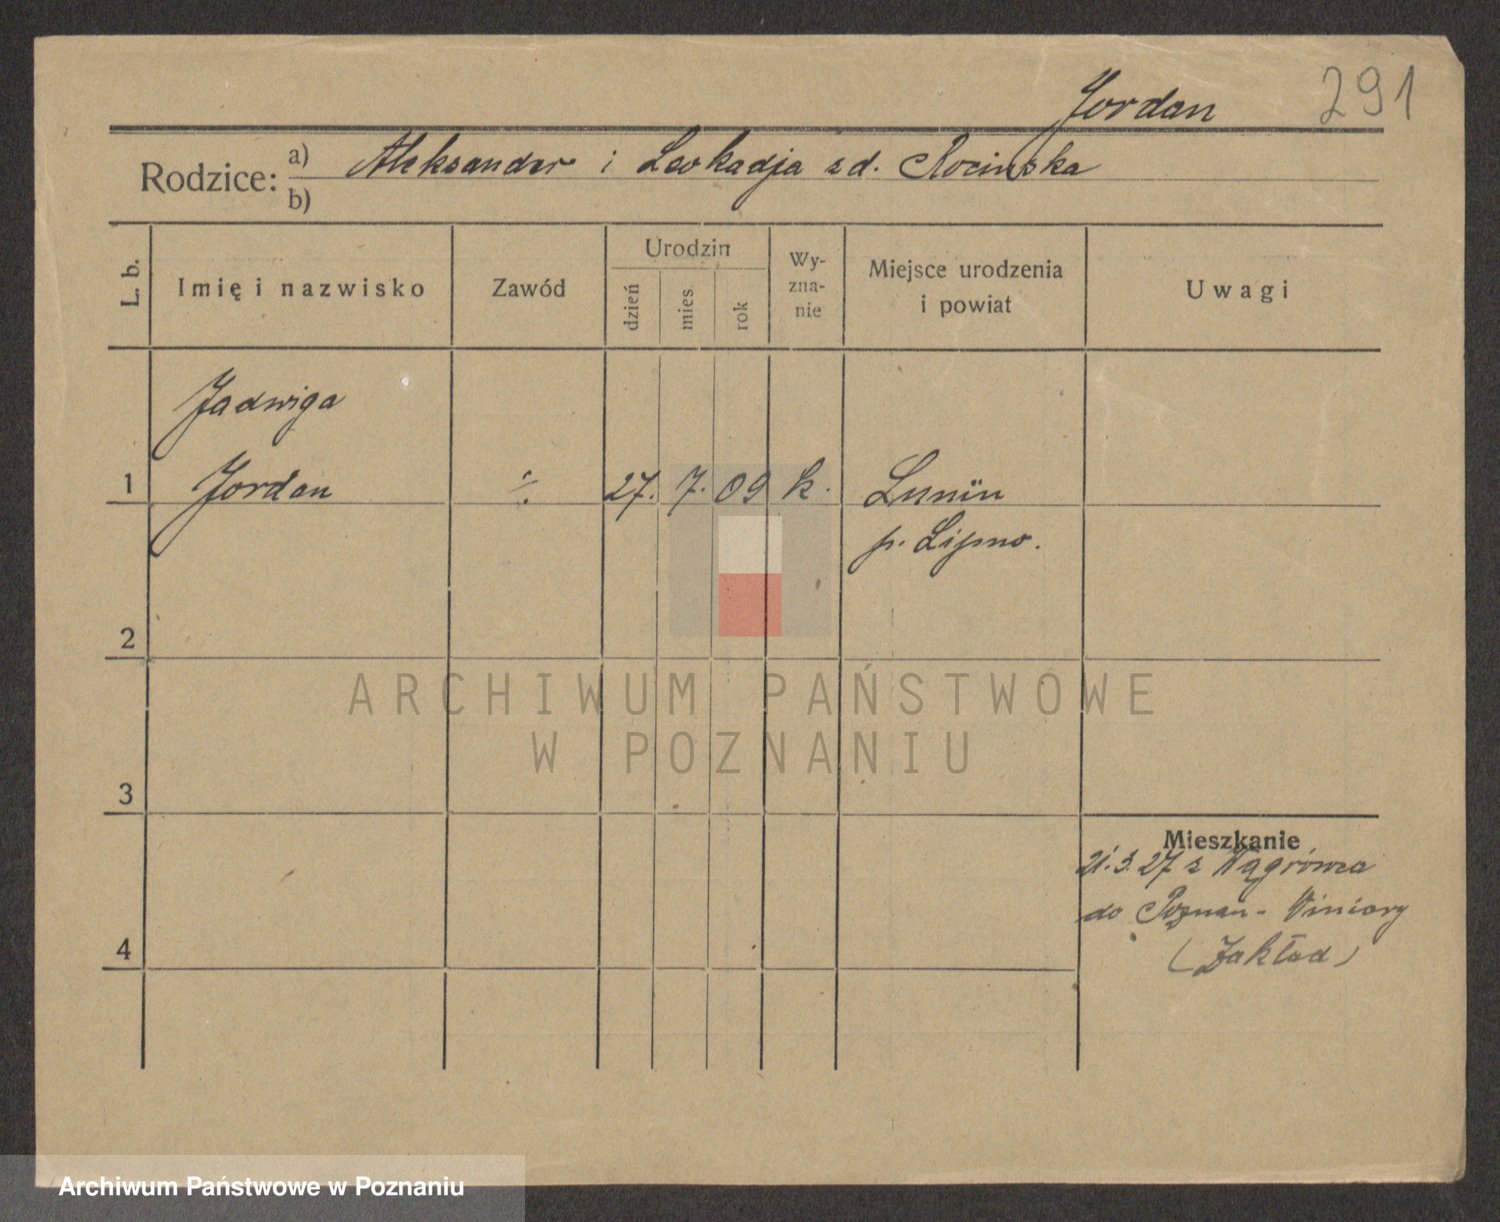 291
Jordan
Rodzice: a) Aleksander i Leokadja z d. Rocinska
b)
L. b.
Imię i nazwisko
Zawód
Urodzin
dzień
mies.
rok
Wy-
zna-
nie
Miejsce urodzenia
i powiat
Uwagi
Jadwiga
1 Jordan ./. 27. 7. 09 k.
p. Lipno.
2
3
4
Mieszkanie
21.3.27 z Wągrówca
do Poznan - Winiary
(Zakład)
ARCHIWUM PAŃSTWOWE
W POZNANIU
Archiwum Państwowe w Poznaniu